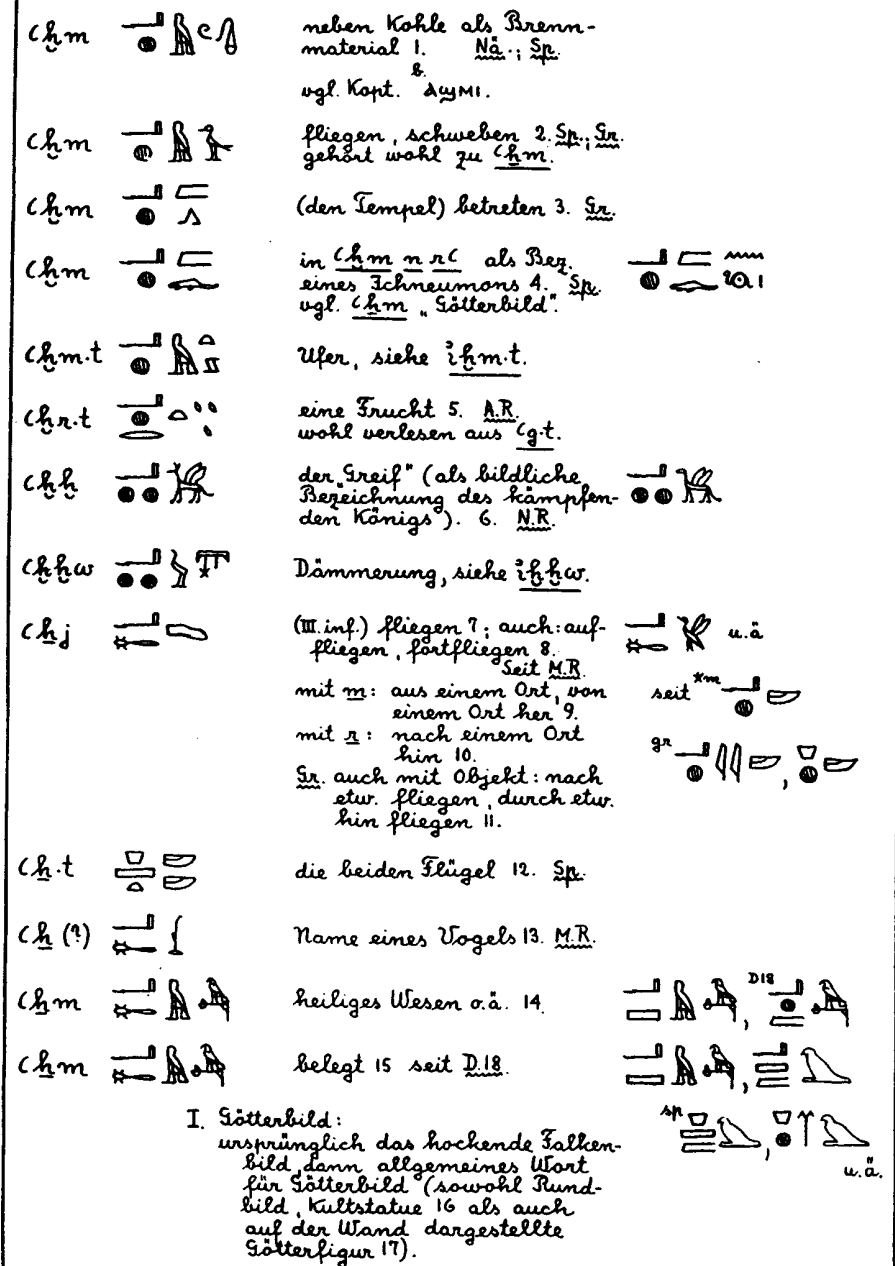 ꜥḫm neben Kohle als Brenn-
material 1. Nä.; Sp.
vgl. Kopt. b. ⲁϣⲙⲓ.
ꜥḫm fliegen, schweben 2. Sp.; Gr.
gehört wohl zu ꜥẖm.
ꜥḫm (den Tempel) betreten 3. Gr.
ꜥḫm in ꜥḫm n rꜥ als Bez.
eines Ichneumons 4. Sp.
vgl. ꜥẖm „Götterbild".
ꜥḫm.t Ufer, siehe iḫm.t.
ꜥḫr.t eine Frucht 5. A.R.
wohl verlesen aus ꜥg.t.
ꜥḫḫ der „Greif" (als bildliche
Bezeichnung des kämpfen-
den Königs). 6. N.R.
ꜥḫḫw Dämmerung, siehe iḫḫw.
ꜥẖj (III. inf.) fliegen 7; auch: auf- u.ä
fliegen, fortfliegen 8.
Seit M.R.
mit m: aus einem Ort, von seit *m
einem Ort her 9.
mit r: nach einem Ort gr
hin 10.
Gr. auch mit Objekt: nach
etw. fliegen, durch etw.
hin fliegen 11.
ꜥẖ.t die beiden Flügel 12. Sp.
ꜥẖ (?) Name eines Vogels 13. M.R.
ꜥẖm heiliges Wesen o.ä. 14. D18
ꜥẖm belegt 15 seit D.18.
I. Götterbild: sp
ursprünglich das hockende Falken-
bild, dann allgemeines Wort u.ä.
für Götterbild (sowohl Rund-
bild, Kultstatue 16 als auch
auf der Wand dargestellte
Götterfigur 17).